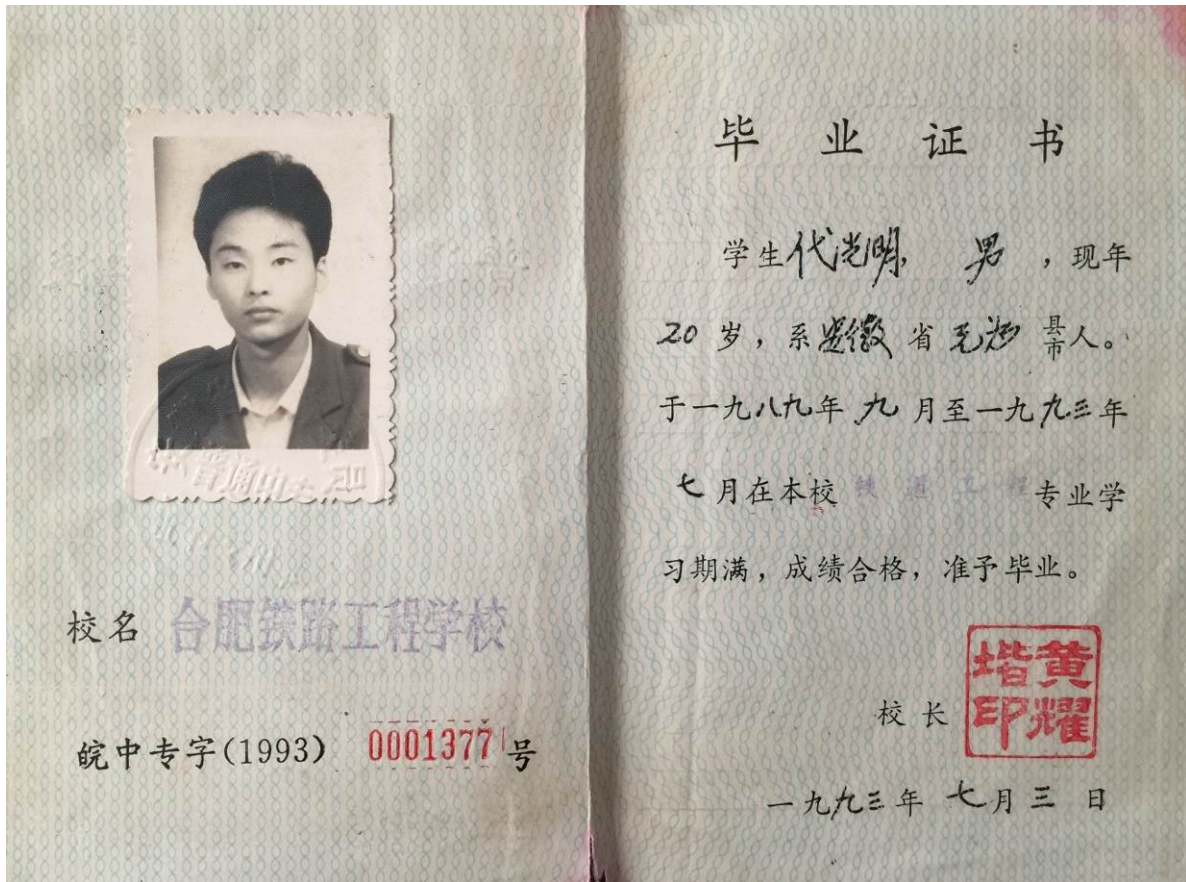 校名 合肥铁路工程学校
皖中专字(1993) 0001377 号
毕业证书
学生代光明, 男 ,现年
20 岁,系安徽省无为县市人。
于一九八九年九月至一九九三年
七月在本校铁道工程专业学
习期满,成绩合格,准予毕业。
校长 黄耀堦印
一九九三年七月三日